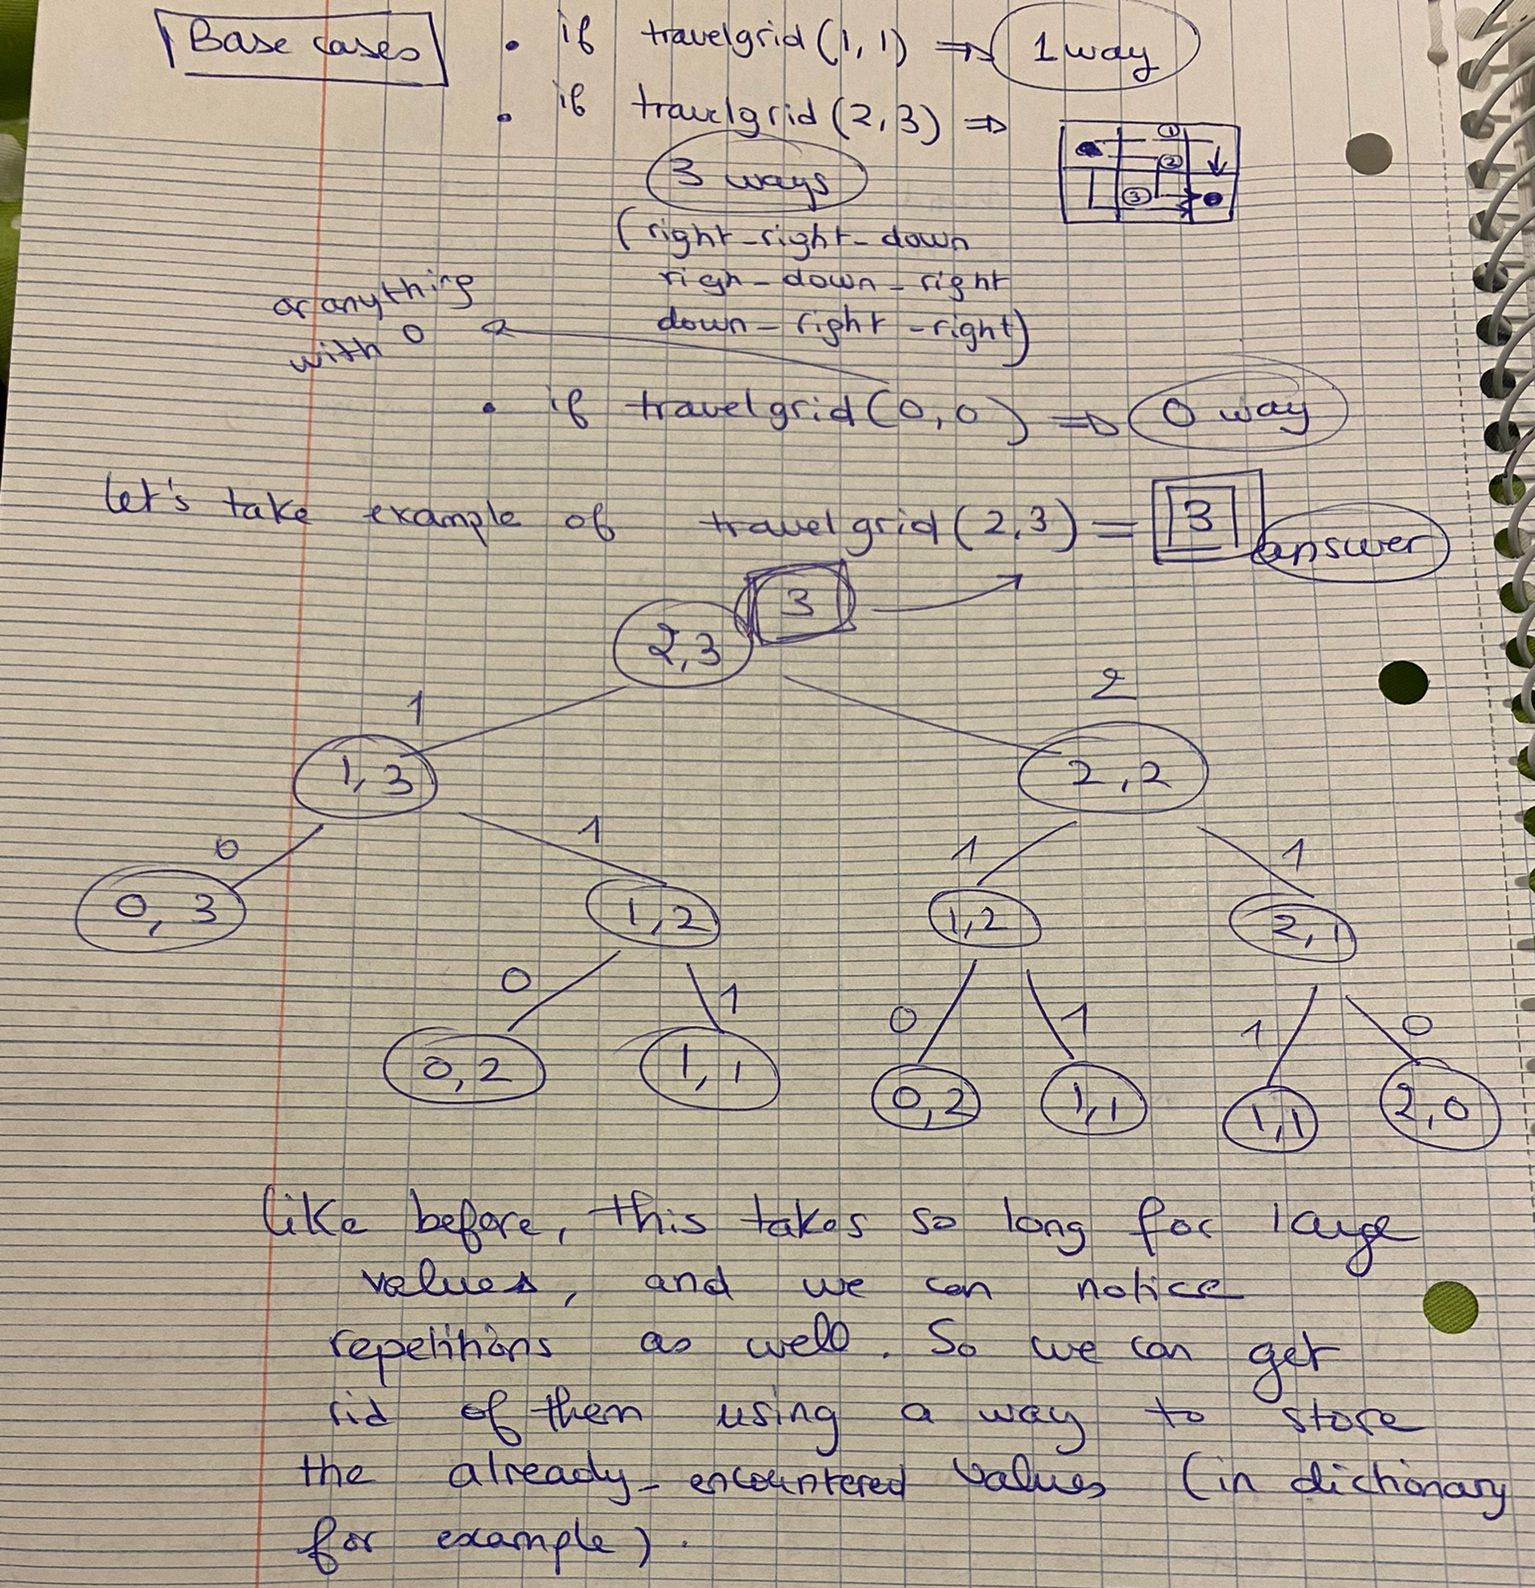 Base cases
• if travelgrid(1,1) ⇒ 1 way
• if travelgrid(2,3) ⇒
1
2
3
3 ways
(right-right-down
righ-down-right
down-right-right)
or anything
with 0
• if travelgrid(0,0) ⇒ 0 way
let's take example of travelgrid(2,3) = 3 answer
3
2,3
1 2
1,3 2,2
0 1 1 1
0,3 1,2 1,2 2,1
0 1 0 1 1 0
0,2 1,1 0,2 1,1 1,1 2,0
like before, this takes so long for large
values, and we can notice
repetitions as well. So we can get
rid of them using a way to store
the already-encountered values (in dictionary
for example).